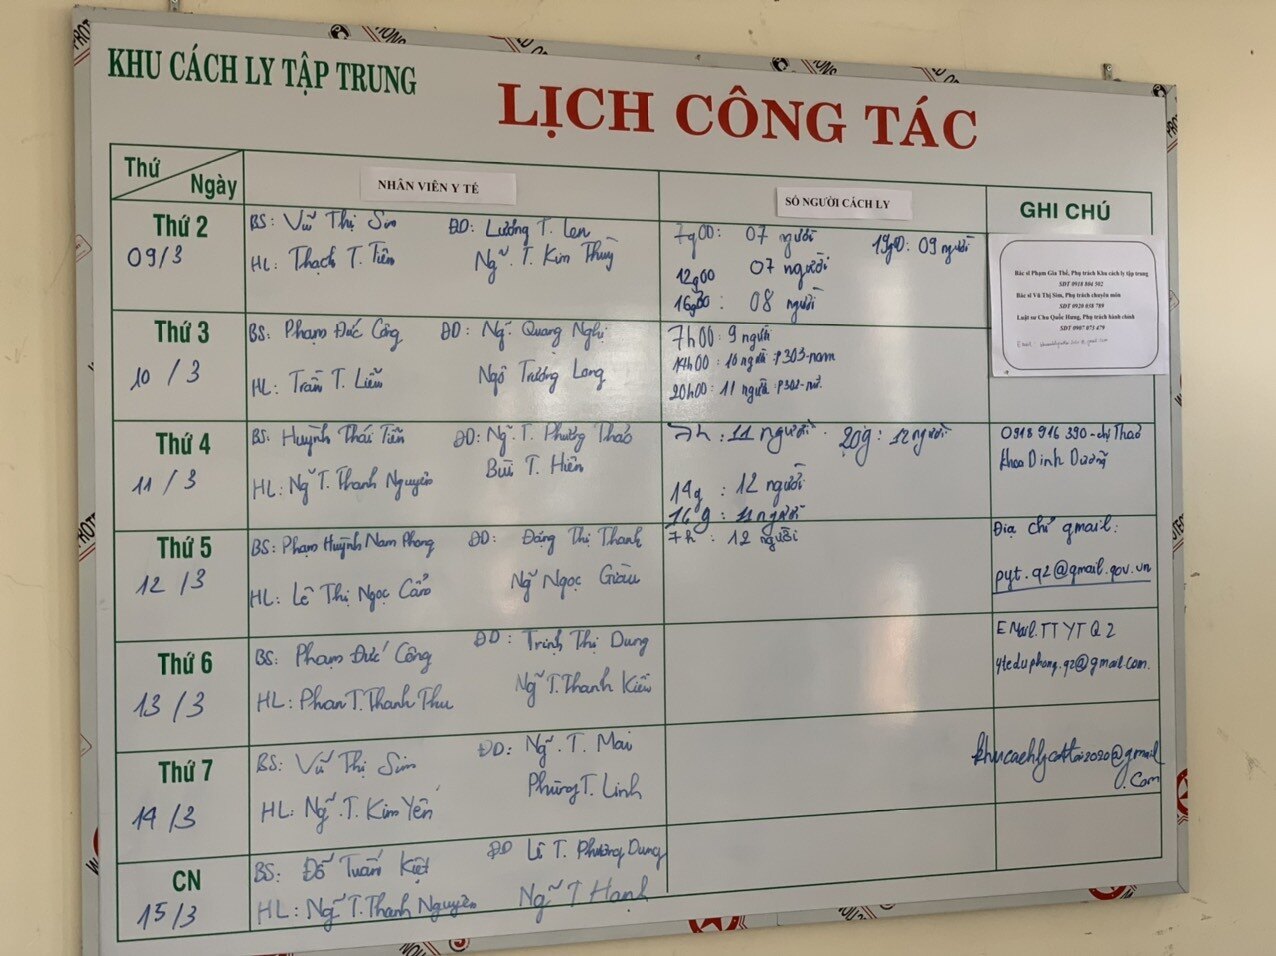 KHU CÁCH LY TẬP TRUNG
LỊCH CÔNG TÁC
Thứ
Ngày
NHÂN VIÊN Y TẾ
SỐ NGƯỜI CÁCH LY
GHI CHÚ
Thứ 2
09/3
BS: Vũ Thị Sim ĐD: Lương T. Len
HL: Thạch T. Tiên Ng~. T. Kim Thùy
7g00: 07 người 19g00: 09 người
12g00 07 người
16g30: 08 người
Bác sĩ Phạm Gia Thế, Phụ trách Khu cách ly tập trung
SĐT 0918 804 502
Bác sĩ Vũ Thị Sim, Phụ trách chuyên môn
SĐT 0920 038 789
Luật sư Chu Quốc Hưng, Phụ trách hành chính
SĐT 0907 073 479
Email:
Thứ 3
10/3
BS: Phạm Đức Công ĐD: Ng~. Quang Nghị
HL: Trần T. Liễu Ngô Trường Long
7h00: 9 người
14h00: 10 người: P303-nam
20h00: 11 người: P302-nữ.
Thứ 4
11/3
BS: Huỳnh Thái Tiễn ĐD: Ng~. T. Phương Thảo
Bùi T. Hiên
HL: Ng~ T. Thanh Nguyên
7h: 11 người. 20g: 12 người
14g: 12 người
16g: 11 người
0918 916 390 - chị Thảo
Khoa Dinh Dưỡng
Thứ 5
12/3
BS: Phạm Huỳnh Nam Phong ĐD: Đặng Thị Thanh
HL: Lê Thị Ngọc Cẩm Ng~ Ngọc Giàu
7h: 12 người
Địa chỉ gmail:
pyt.q2@gmail.gov.vn
Thứ 6
13/3
BS: Phạm Đức Công ĐD: Trịnh Thị Dung
HL: Phan T. Thanh Thu Ng~ T. Thanh Kiều
EMail. TTYTQ2
yteduphong.q2@gmail.com.
Thứ 7
14/3
BS: Vũ Thị Sim ĐD: Ng~. T. Mai
HL: Ng~. T. Kim Yến Phùng T. Linh
khucachlycattai2020@gmail
.com
CN
15/3
BS: Đỗ Tuấn Kiệt ĐD Lê T. Phương Dung
HL: Ng~ T. Thanh Nguyên Ng~ T Hạnh